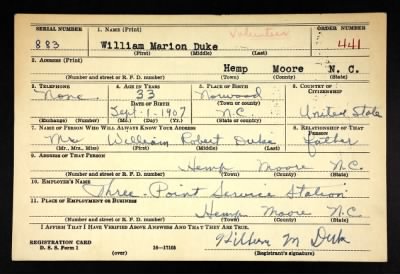 SERIAL NUMBER 1. NAME (Print) ORDER NUMBER
Volunteer
883 William Marion Duke 441
(First) (Middle) (Last)
2. ADDRESS (Print)
Hemp Moore N. C.
(Number and street or R. F. D. number) (Town) (County) (State)
3. TELEPHONE 4. AGE IN YEARS 5. PLACE OF BIRTH 6. COUNTRY OF CITIZENSHIP
None 33 Norwood
DATE OF BIRTH (Town or county)
Sept. 1. 1907 N.C. United State
(Exchange) (Number) (Mo.) (Day) (Yr.) (State or country)
7. NAME OF PERSON WHO WILL ALWAYS KNOW YOUR ADDRESS 8. RELATIONSHIP OF THAT PERSON
Mr William Robert Duke father
(Mr., Mrs., Miss) (First) (Middle) (Last)
9. ADDRESS OF THAT PERSON
Hemp Moore N.C.
(Number and street or R. F. D. number) (Town) (County) (State)
10. EMPLOYER'S NAME
Three-Point Service Station
11. PLACE OF EMPLOYMENT OR BUSINESS
Hemp Moore N.C.
(Number and street or R. F. D. number) (Town) (County) (State)
I AFFIRM THAT I HAVE VERIFIED ABOVE ANSWERS AND THAT THEY ARE TRUE.
REGISTRATION CARD William M Duke
D. S. S. Form 1 (over) 16-17105 (Registrant's signature)